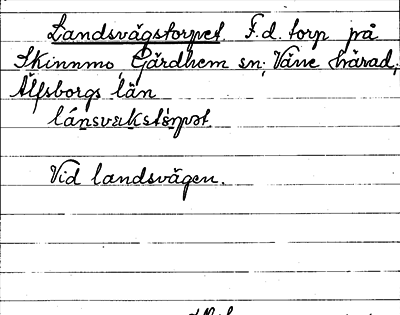 Landsvägstorpet. F.d. torp på
Skinnmo, Gärdhem sn; Väne härad,
Älfsborgs län
lánsvækstòrpət.
Vid landsvägen.